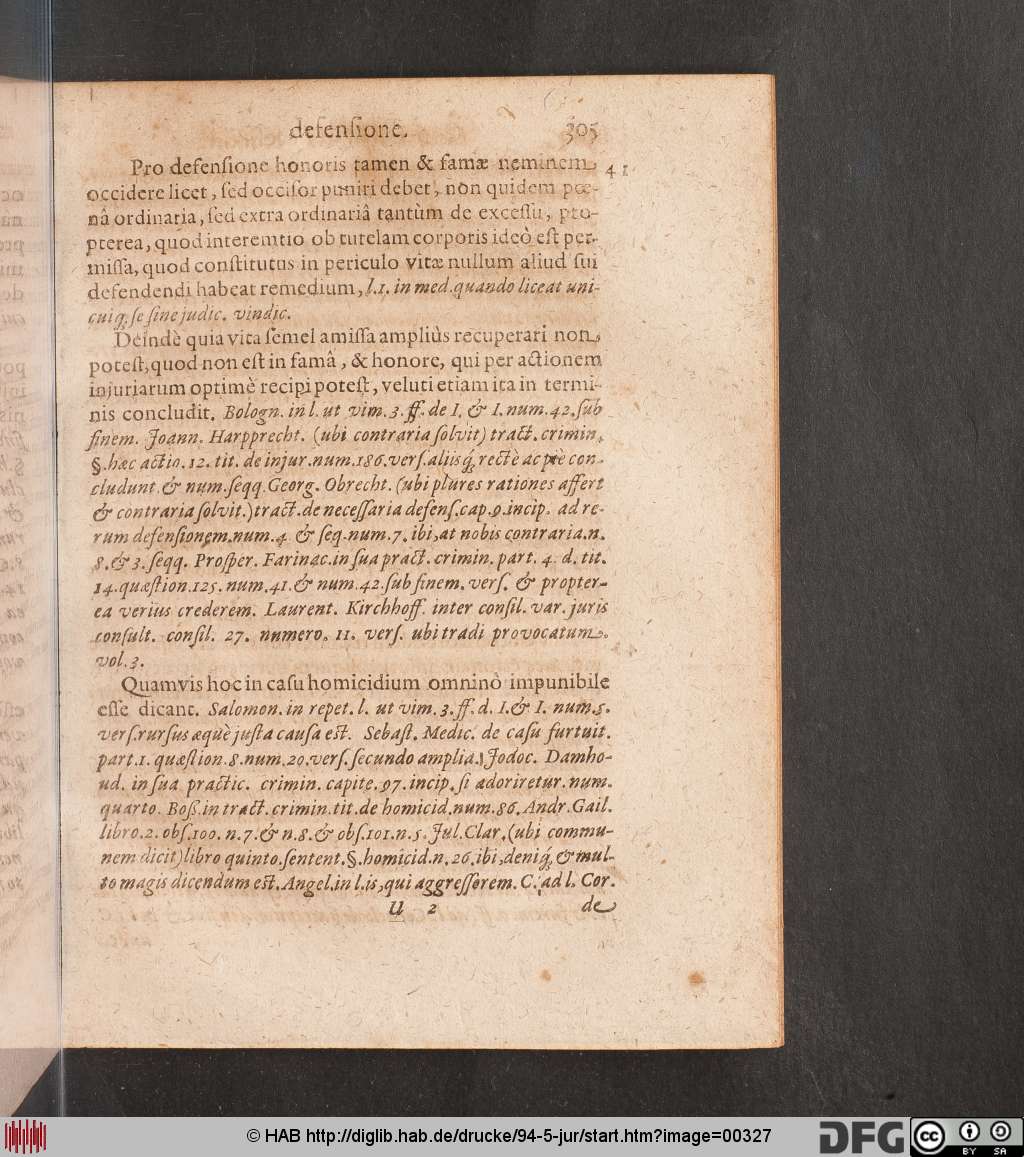 defensione. 305
Pro defensione honoris tamen & famæ neminem 41
occidere licet, sed occisor puniri debet, non quidem pœ-
nâ ordinaria, sed extra ordinariâ tantùm de excessu, pro-
pterea, quod interemtio ob tutelam corporis ideò est per-
missa, quod constitutus in periculo vitæ nullum aliud sui
defendendi habeat remedium, l.1. in med. quando liceat uni-
cuiq; se sine judic. vindic.
Deindè quia vita semel amissa ampliùs recuperari non
potest, quod non est in famâ, & honore, qui per actionem
injuriarum optimè recipi potest, veluti etiam ita in termi-
nis concludit. Bologn. in l. ut vim. 3. ff. de I. & I. num. 42. sub
finem. Joann. Harpprecht. (ubi contraria solvit) tract. crimin.
§. hæc actio. 12. tit. de injur. num. 186. vers. aliisq; rectè ac piè con-
cludunt. & num. seqq. Georg. Obrecht. (ubi plures rationes affert
& contraria solvit.) tract. de necessaria defens. cap. 9. incip. ad re-
rum defensionem. num. 4. & seq. num. 7. ibi, at nobis contraria. n.
8. & 3. seqq. Prosper. Farinac. in sua pract. crimin. part. 4. d. tit.
14. quæstion. 125. num. 41. & num. 42. sub finem. vers. & propter-
ea verius crederem. Laurent. Kirchhoff. inter consil. var. juris
consult. consil. 27. numero. 11. vers. ubi tradi provocatum.
vol. 3.
Quamvis hoc in casu homicidium omninò impunibile
esse dicant. Salomon. in repet. l. ut vim. 3. ff. d. I. & I. num. 5.
vers. rursus æquè justa causa est. Sebast. Medic. de casu furtuit.
part. 1. quæstion. 8. num. 20. vers. secundo amplia.) Jodoc. Damho-
ud. in sua practic. crimin. capite. 97. incip. si adoriretur. num.
quarto. Boß. in tract. crimin. tit. de homicid. num. 86. Andr. Gail.
libro. 2. obs. 100. n. 7. & n. 8. & obs. 101. n. 5. Jul. Clar. (ubi commu-
nem dicit) libro quinto. sentent. §. homicid. n. 26. ibi, deniq; & mul-
to magis dicendum est. Angel. in l. is, qui aggressorem. C. ad l. Cor.
U 2 de
© HAB http://diglib.hab.de/drucke/94-5-jur/start.htm?image=00327
DFG cc BY SA